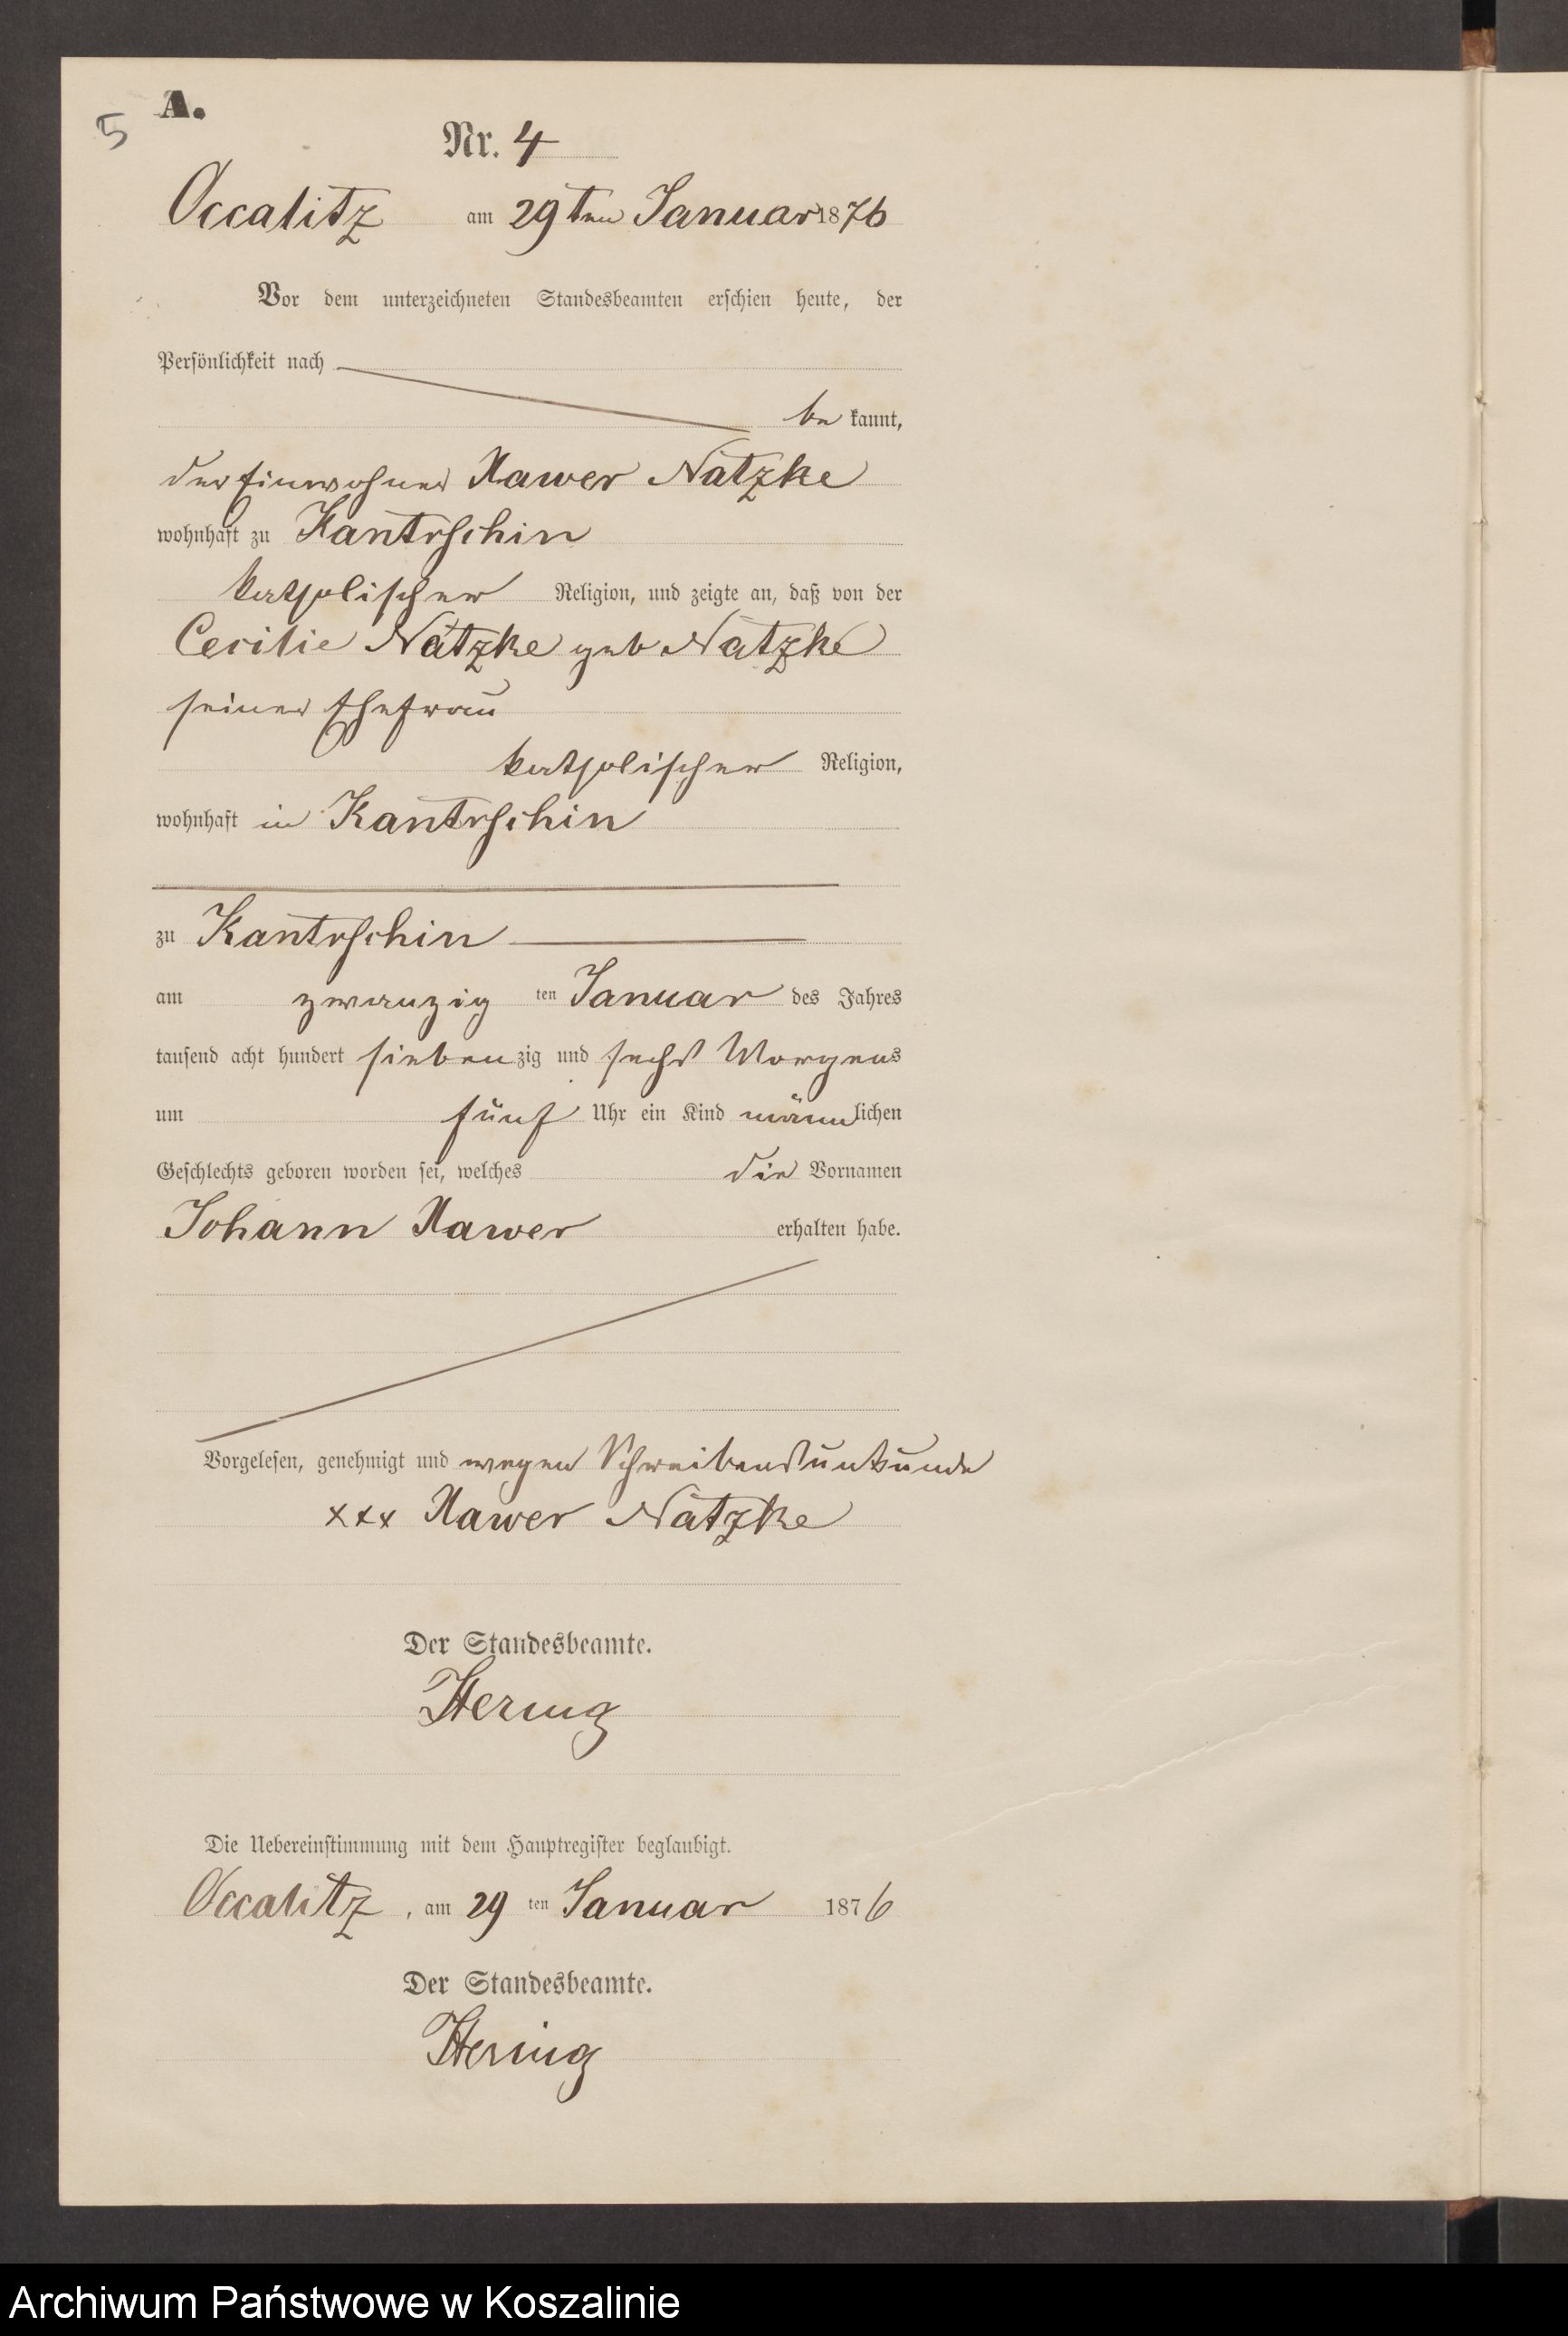 A.
5
Nr. 4
Occalitz am 29ten Januar 1876
Vor dem unterzeichneten Standesbeamten erschien heute, der
Persönlichkeit nach
be kannt,
der Einwohner Xawer Natzke
wohnhaft zu Kantrschin
katholischer Religion, und zeigte an, daß von der
Cecilie Natzke geb Natzke
seiner Ehefrau
katholischer Religion,
wohnhaft in Kantrschin
zu Kantrschin
am zwanzig ten Januar des Jahres
tausend acht hundert siebenzig und sechs Morgens
um fünf Uhr ein Kind männlichen
Geschlechts geboren worden sei, welches die Vornamen
Johann Xawer erhalten habe.
Vorgelesen, genehmigt und wegen Schreibensunkunde
xxx Xawer Natzke
Der Standesbeamte.
Hering
Die Uebereinstimmung mit dem Hauptregister beglaubigt.
Occalitz, am 29 ten Januar 1876
Der Standesbeamte.
Hering
Archiwum Państwowe w Koszalinie